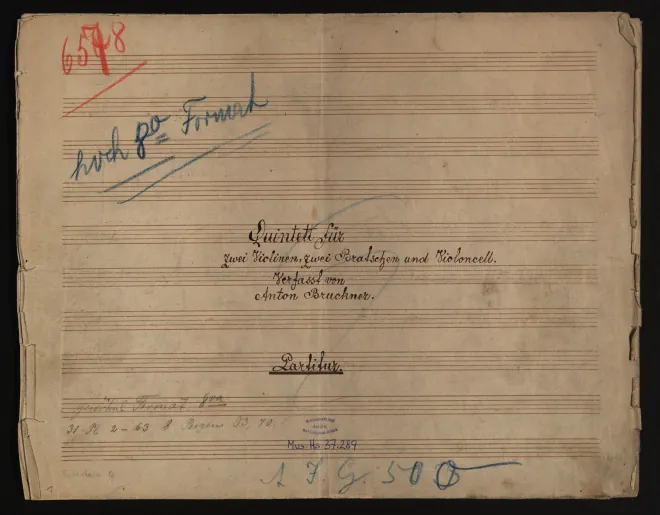 6578
hoch 8º Format
Quintett für
zwei Violinen, zwei Bratschen und Violoncell.
Verfasst von
Anton Bruckner.
Partitur.
Format 8va
31 Pl 2 – 63 8 Bogen 33, 70.
Mus. Hs. 37.289
A J G. 500